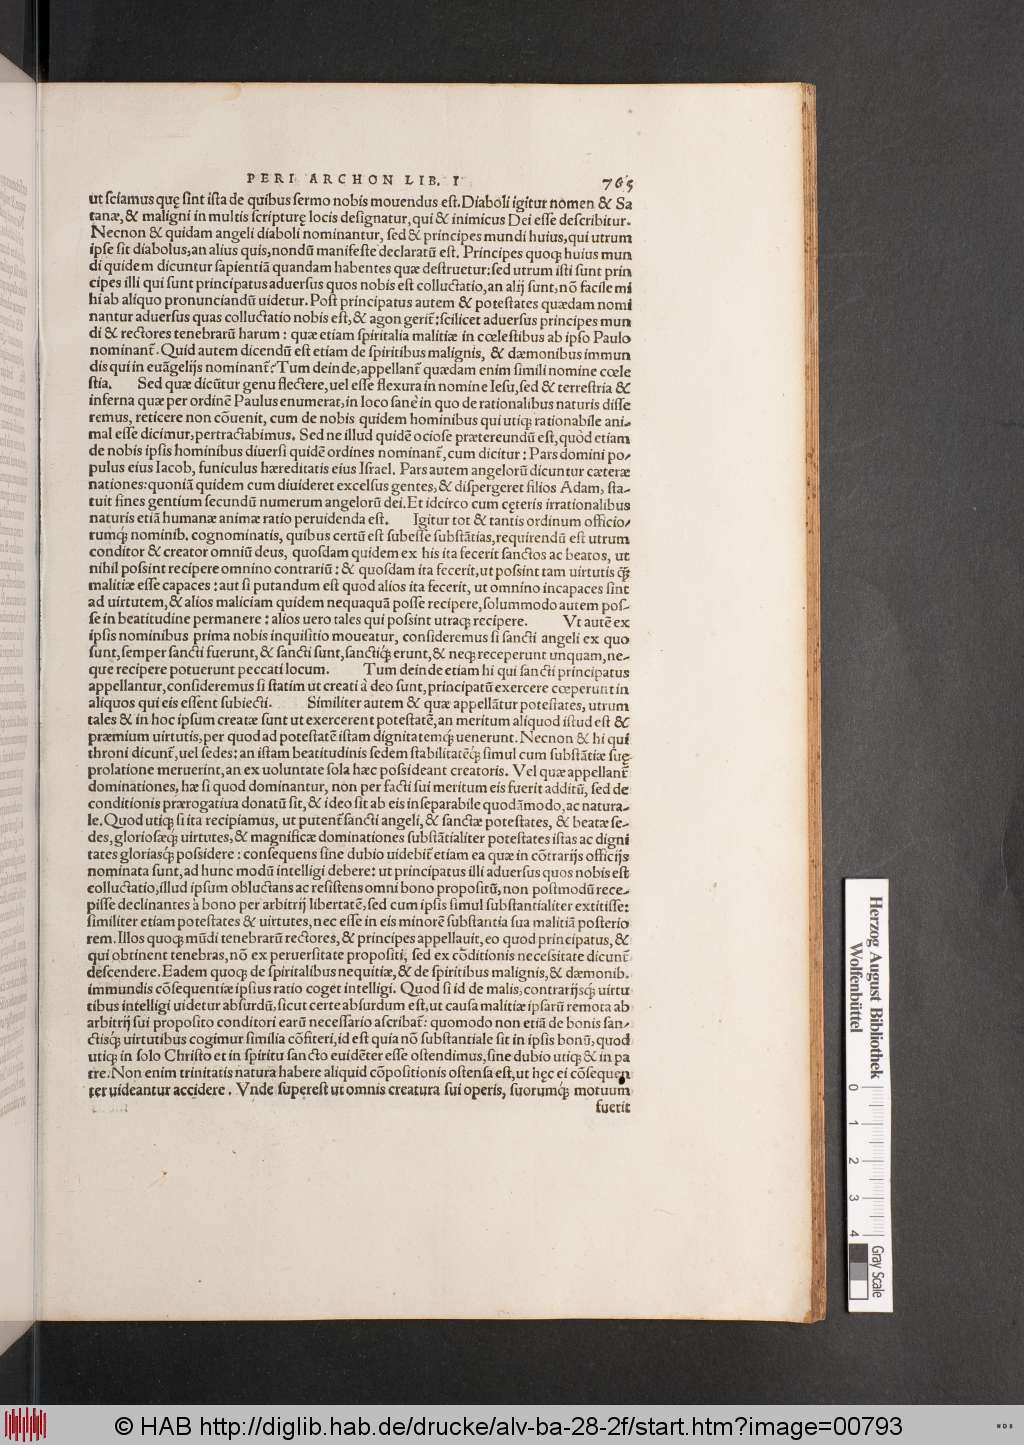 PERI ARCHON LIB. I 765
ut sciamus quę sint ista de quibus sermo nobis mouendus est. Diaboli igitur nomen & Sa
tanæ, & maligni in multis scripturę locis designatur, qui & inimicus Dei esse describitur.
Necnon & quidam angeli diaboli nominantur, sed & principes mundi huius, qui utrum
ipse sit diabolus, an alius quis, nondū manifeste declaratū est. Principes quoq; huius mun
di quidem dicuntur sapientiā quandam habentes quæ destruetur: sed utrum isti sunt prin
cipes illi qui sunt principatus aduersus quos nobis est colluctatio, an alij sunt, nō facile mi
hi ab aliquo pronunciandū uidetur. Post principatus autem & potestates quædam nomi
nantur aduersus quas colluctatio nobis est, & agon gerit̃: scilicet aduersus principes mun
di & rectores tenebrarū harum: quæ etiam spiritalia malitiæ in cœlestibus ab ipso Paulo
nominant̃. Quid autem dicendū est etiam de spiritibus malignis, & dæmonibus immun
dis qui in euāgelijs nominant̃? Tum deinde, appellant̃ quædam enim simili nomine cœle
stia. Sed quæ dicūtur genu flectere, uel esse flexura in nomine Iesu, sed & terrestria &
inferna quæ per ordinē Paulus enumerat, in loco sanè in quo de rationalibus naturis disse
remus, reticere non cōuenit, cum de nobis quidem hominibus qui utiq; rationabile ani-
mal esse dicimur, pertractabimus. Sed ne illud quidē ociose prætereundū est, quòd etiam
de nobis ipsis hominibus diuersi quidē ordines nominant̃, cum dicitur: Pars domini po-
pulus eius Iacob, funiculus hæreditatis eius Israel. Pars autem angelorū dicuntur cæteræ
nationes: quoniā quidem cum diuideret excelsus gentes, & dispergeret filios Adam, sta-
tuit fines gentium secundū numerum angelorū dei. Et idcirco cum cęteris irrationalibus
naturis etiā humanæ animæ ratio peruidenda est. Igitur tot & tantis ordinum officio-
rumq́; nominib. cognominatis, quibus certū est subesse substātias, requirendū est utrum
conditor & creator omniū deus, quosdam quidem ex his ita fecerit sanctos ac beatos, ut
nihil possint recipere omnino contrariū: & quosdam ita fecerit, ut possint tam uirtutis q̃
malitiæ esse capaces: aut si putandum est quod alios ita fecerit, ut omnino incapaces sint
ad uirtutem, & alios maliciam quidem nequaquā posse recipere, solummodo autem pos-
se in beatitudine permanere: alios uero tales qui possint utraq; recipere. Vt autē ex
ipsis nominibus prima nobis inquisitio moueatur, consideremus si sancti angeli ex quo
sunt, semper sancti fuerunt, & sancti sunt, sanctiq́; erunt, & neq; receperunt unquam, ne-
que recipere potuerunt peccati locum. Tum deinde etiam hi qui sancti principatus
appellantur, consideremus si statim ut creati à deo sunt, principatū exercere cœperunt in
aliquos qui eis essent subiecti. Similiter autem & quæ appellātur potestates, utrum
tales & in hoc ipsum creatæ sunt ut exercerent potestatē, an meritum aliquod istud est &
præmium uirtutis, per quod ad potestatē istam dignitatemq́; uenerunt. Necnon & hi qui
throni dicunt̃, uel sedes: an istam beatitudinis sedem stabilitatēq́; simul cum substātiæ suę
prolatione meruerint, an ex uoluntate sola hæc possideant creatoris. Vel quæ appellant̃
dominationes, hæ si quod dominantur, non per facti sui meritum eis fuerit additū, sed de
conditionis prærogatiua donatū sit, & ideo sit ab eis inseparabile quodāmodo, ac natura-
le. Quod utiq; si ita recipiamus, ut putent̃ sancti angeli, & sanctæ potestates, & beatæ se-
des, gloriosæq́; uirtutes, & magnificæ dominationes substātialiter potestates istas ac digni
tates gloriasq́; possidere: consequens sine dubio uidebit̃ etiam ea quæ in cōtrarijs officijs
nominata sunt, ad hunc modū intelligi debere: ut principatus illi aduersus quos nobis est
colluctatio, illud ipsum obluctans ac resistens omni bono propositū, non postmodū rece-
pisse declinantes à bono per arbitrij libertatē, sed cum ipsis simul substantialiter extitisse:
similiter etiam potestates & uirtutes, nec esse in eis minorē substantia sua malitiā posterio
rem. Illos quoq; mūdi tenebrarū rectores, & principes appellauit, eo quod principatus, &
qui obtinent tenebras, nō ex peruersitate propositi, sed ex cōditionis necessitate dicunt̃
descendere. Eadem quoq; de spiritalibus nequitiæ, & de spiritibus malignis, & dæmonib.
immundis cōsequentiæ ipsius ratio coget intelligi. Quod si id de malis, contrarijsq; uirtu
tibus intelligi uidetur absurdū, sicut certe absurdum est, ut causa malitiæ ipsarū remota ab
arbitrij sui proposito conditori earū necessario ascribat̃: quomodo non etiā de bonis san-
ctisq́; uirtutibus cogimur similia cōfiteri, id est quia nō substantiale sit in ipsis bonū, quod
utiq; in solo Christo et in spiritu sancto euidēter esse ostendimus, sine dubio utiq; & in pa
tre. Non enim trinitatis natura habere aliquid cōpositionis ostensa est, ut hęc ei cōsequen
ter uideantur accidere. Vnde superest ut omnis creatura sui operis, suorumq́; motuum
fuerit
Herzog August Bibliothek
Wolfenbüttel
0 1 2 3 4
Gray Scale
© HAB http://diglib.hab.de/drucke/alv-ba-28-2f/start.htm?image=00793